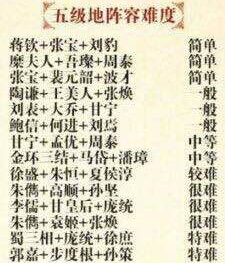 五级地阵容难度
蒋钦+张宝+刘豹 简单
糜夫人+吾璨+周泰 简单
张宝+裴元韶+波才 简单
陶谦+王美人+张焕 一般
刘表+乔大+甘宁 一般
鲍信+何进+刘焉 一般
甘宁+孟优+周泰 中等
金环三结+马岱+潘璋 中等
徐盛+朱恒+夏侯淳 较难
朱儁+高顺+孙坚 很难
李儒+甘皇后+庞统 很难
朱儁+袁姬+张焕 很难
蜀三相+庞统+徐庶 特难
郭嘉+步度根+孙策 特难